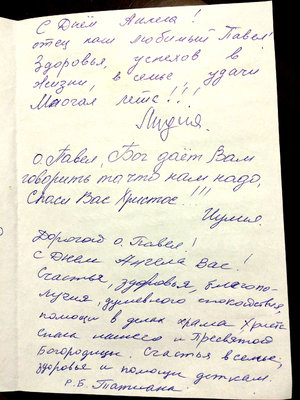 С Днём Ангела!
отец наш любимый Павел!
Здоровья, успехов в
жизни, в семье, удачи
Многая лета!!!
Лидия.
о. Павел, Бог даёт Вам
говорить то что нам надо,
Спаси Вас Христос!!!
Дорогой о. Павел!
С Днем Ангела Вас!
Счастья, здоровья, благопо-
лучия, душевного спокойствия,
помощи в делах храма Христа
Спаса нашего и Пресвятой
Богородицы. Счастья в семье,
здоровья и помощи деткам.
Р.Б. Татиана.